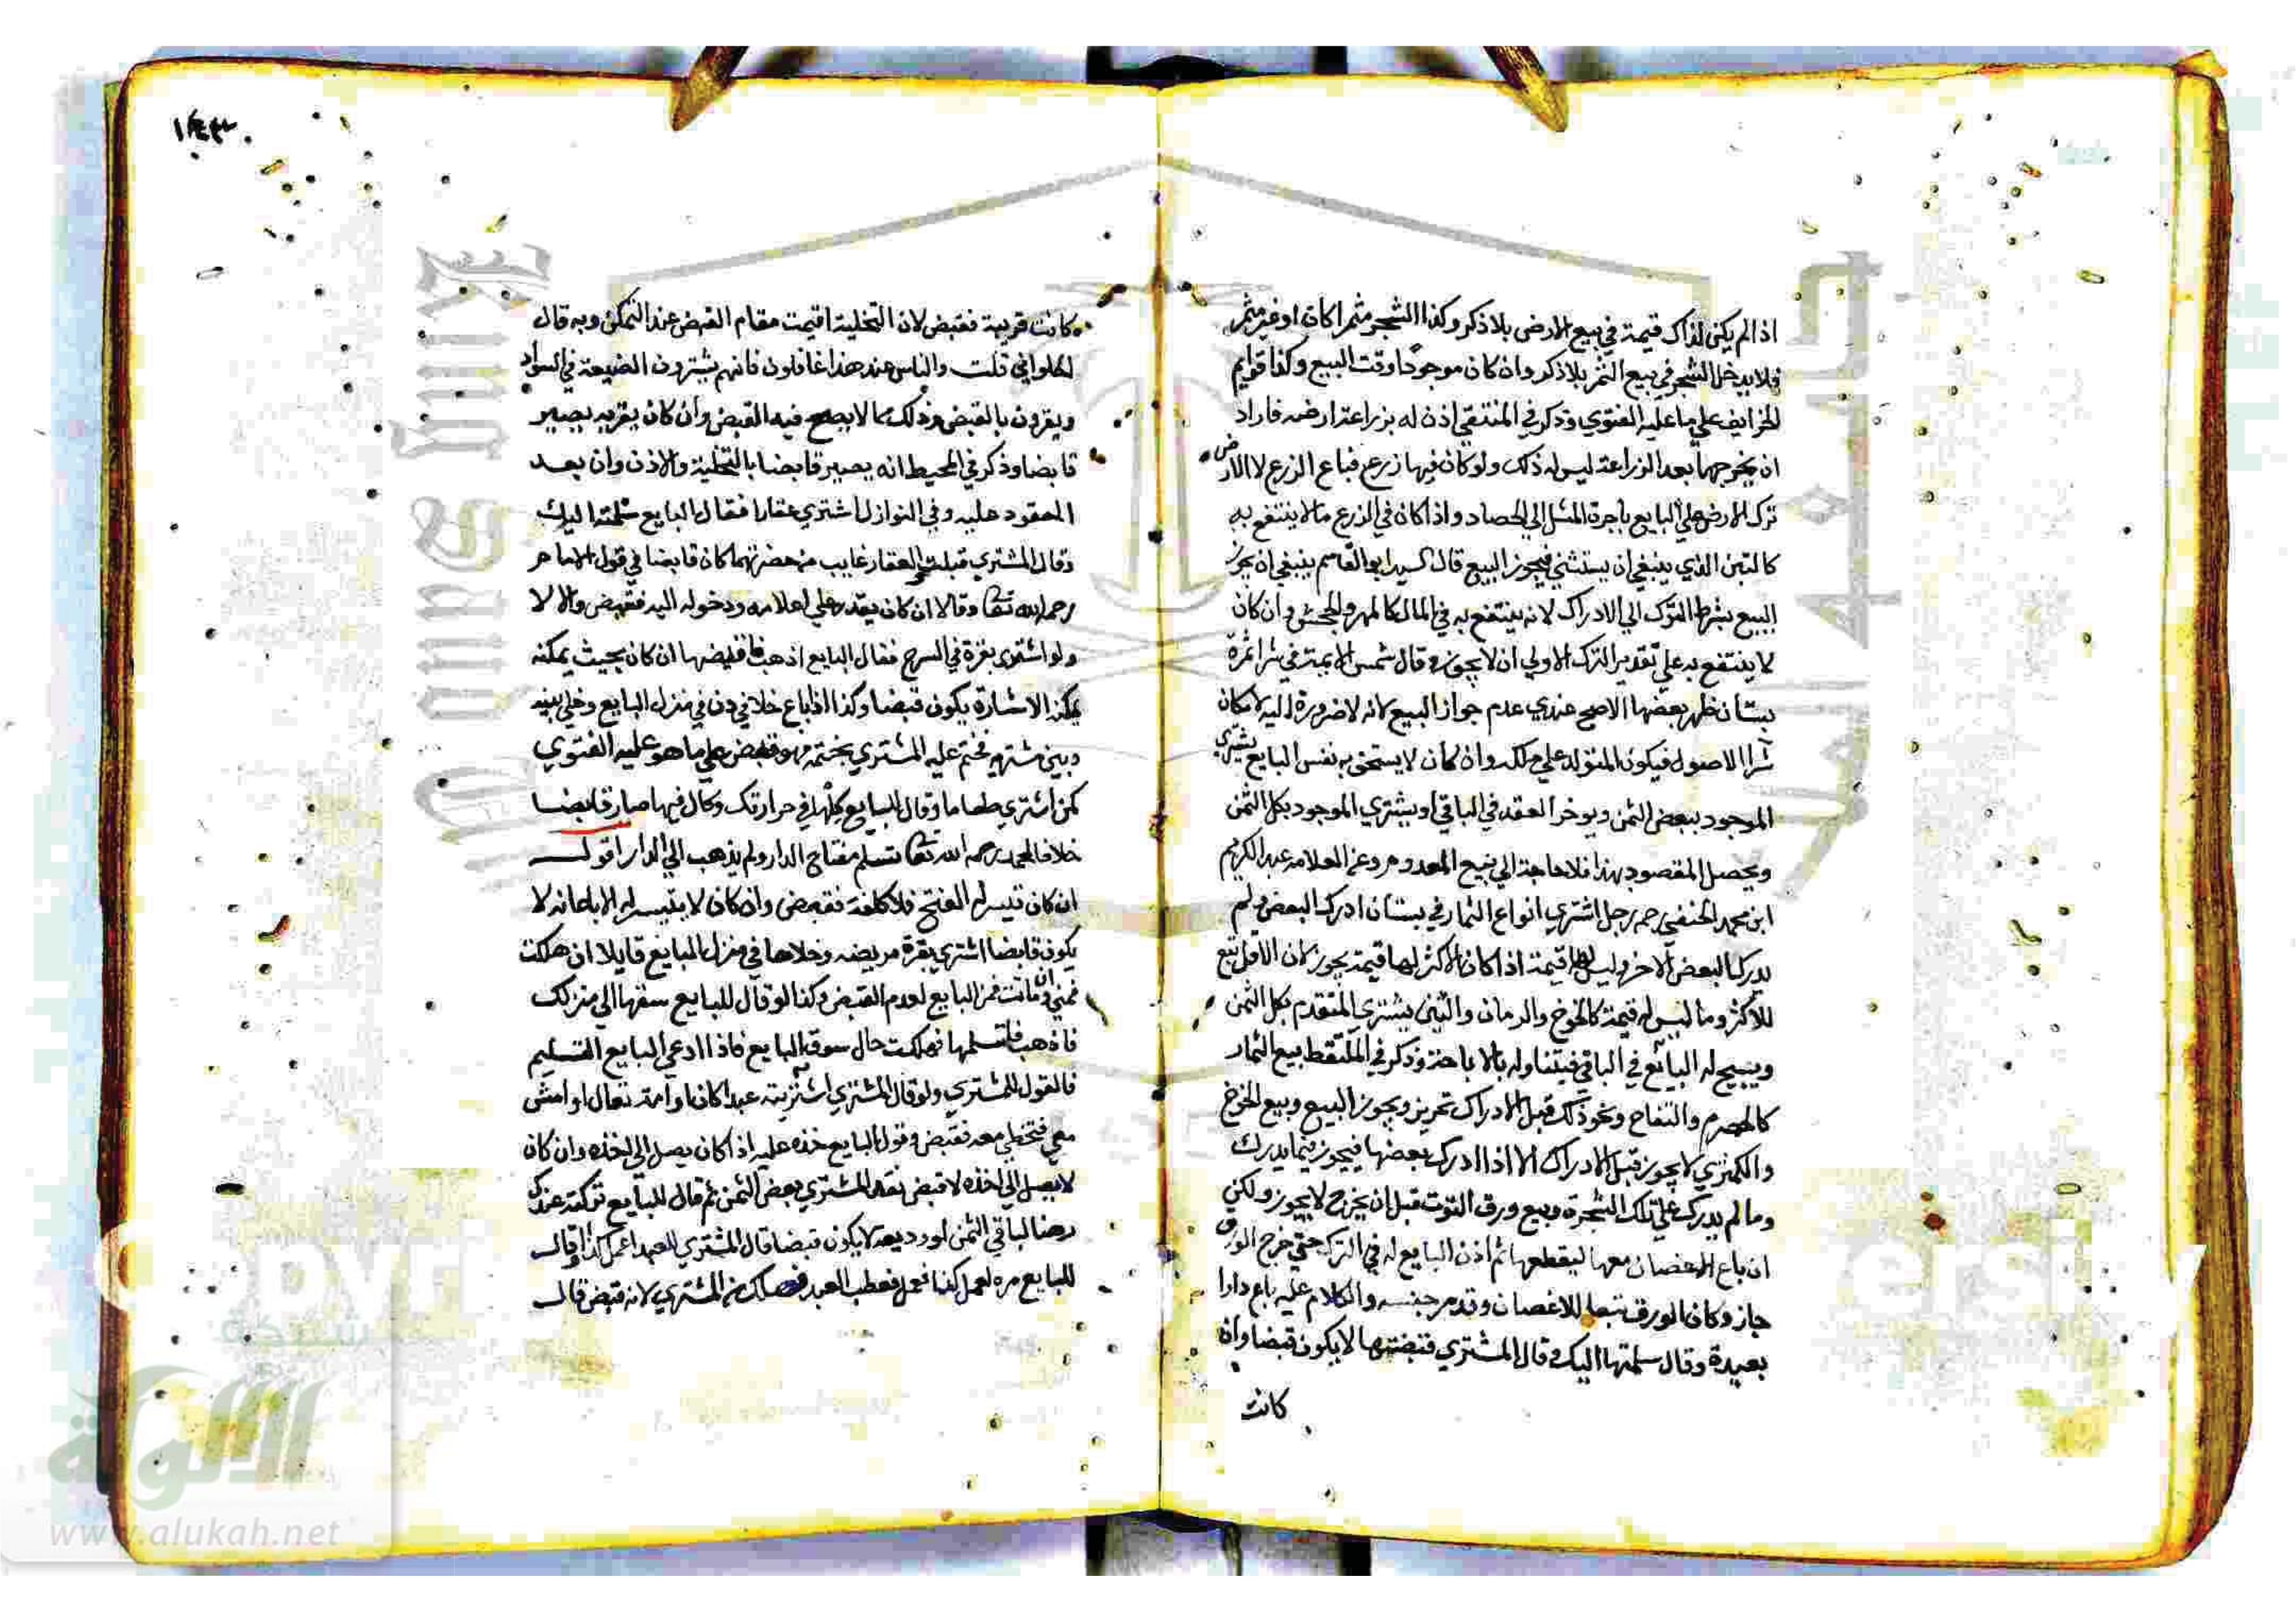 اذا لم يكن لذاك قيمة في بيع الارض بلا ذكر وكذا الشجر مثمرا كان او غير مثمر
فلا يدخل الشجر في بيع الثمر بلا ذكر وان كان موجودا وقت البيع وكذا قوايم
الخ على ما عليه الفتوي وذكر في المنتقي اذن له بزراعة ارضه فاراد
ان يخرجها بعد الزراعة ليس له ذلك ولو كان فيها زرع فباع الزرع لا الارض
ترك الارض علي البايع باجرة المثل الي الحصاد واذا كان في الزرع ما لا ينتفع به
كالتبن الذي ينبغي ان يستثني فيجوز البيع قال السيد ابو القاسم ينبغي ان يجوز
البيع بشرط الترك الي الادراك لانه ينتفع به في المال كالمهر والجحش وان كان
لا ينتفع به علي تقدير الترك الاولي ان لا يجوز وقال شمس الايمة في شرا ثمرة
بستان ظهر بعضها الاصح عندي عدم جواز البيع لانه لا ضرورة اليه لامكان
شرا الاصول فيكون المتولد علي ملكه وان كان لا يستحق به نفس البايع يشتري
الموجود ببعض الثمن ويوخر العقد في الباقي او يشتري الموجود بكل الثمن
ويحصل المقصود بهذا فلا حاجة الي بيع المعدوم وعن العلامه عبد الكريم
ابن محمد الحنفي رحمه رجل اشتري انواع الثمار في بستان ادرك البعض ولم
يدرك البعض الآخر وليس لها قيمة اذا كان الاكثر لها قيمة يجوز لان الاقل تبع
للاكثر وما ليس له قيمة كالخوخ والرمان والتين يشتري المتقدم بكل الثمن
ويبيح له البائع في الباقي فيتناوله بالاباحة وذكر في الملتقط بيع الثمار
كالحصرم والتفاح ونحو ذلك قبل الادراك ويجوز البيع وبيع الخوخ
والكمثري لا يجوز قبل الادراك الا اذا ادرك بعضها فيجوز فيما يدرك
وما لم يدرك علي تلك الشجرة وبيع ورق التوت قبل ان يخرج لا يجوز ولكن
ان باع الاغصان معها ليقطعها ثم اذن البايع له في الترك حتي خرج الورق
جاز وكان الورق تبعا للاغصان وقد مر جنسه والكلام عليه باع دارا
بعيدة وقال سلمتها اليك وقال المشتري قبضتها لا يكون قبضا وان
كانت
كانت قريبة فقبض لان التخلية اقيمت مقام القبض عند التمكن وبه قال
الحلواني قلت والناس عند هذا غافلون فانهم يشترون الضيعة في السواد
ويقرون بالقبض وذلك مما لا يصح فيه القبض وان كان يقربه يصير
قابضا وذكر في المحيط انه يصير قابضا بالتخلية والاذن وان بعد
المعقود عليه وفي النوازل اشتري عقارا فقال البايع سلمته اليك
وقال المشتري قبلت والعقار غايب عن حضرتهما كان قابضا في قول الامام
رحمه الله تعا وقالا ان كان يقدر علي اعلامه ودخوله اليه فقبض والا لا
ولو اشتري بقرة في السرح فقال البايع اذهب فاقبضها ان كان بحيث يمكنه
يمكنه الاشارة يكون قبضا وكذا اذا باع خلا في دن في منزل البايع وخلي بينه
وبين مشتريه فختم عليه المشتري بختمه فهو قبض علي ما هو عليه الفتوي
كمن اشتري طعاما وقال للبايع كله في وكال فيها صار قابضا
خلافا لمحمد رحمه الله تعا تسلم مفتاح الدار ولم يذهب الي الدار اقول
ان كان تيسر له الفتح فلا كلفة فقبض وان كان لا يتيسر له الا باعانة لا
يكون قابضا اشتري بقرة مريضه وخلاها في منزل البايع قايلا ان هلكت
فمني وان ماتت فمن البايع لعدم القبض وكذا لو قال للبايع سقها الي منزلك
فاذهب فاتسلمها فهلكت حال سوق البايع فاذا ادعي البايع التسليم
فالقول للمشتري ولو قال المشتري اشتريته عبدا كان او امة تعال او امش
معي فتخطي معه فقبض وقول البايع خذه عليه اذا كان يصل الي اخذه وان كان
لا يصل الي اخذه لا قبض نقد المشتري بعض الثمن ثم قال للبايع تركته عندك
رهنا لباقي الثمن او وديعة لا يكون قبضا قال المشتري للعبد اعمل كذا او قال
للبايع مره لعمل كذا فعمل فعطب العبد هلك من المشتري لانه قبض قال
شبكة
الألوكة
www.alukah.net